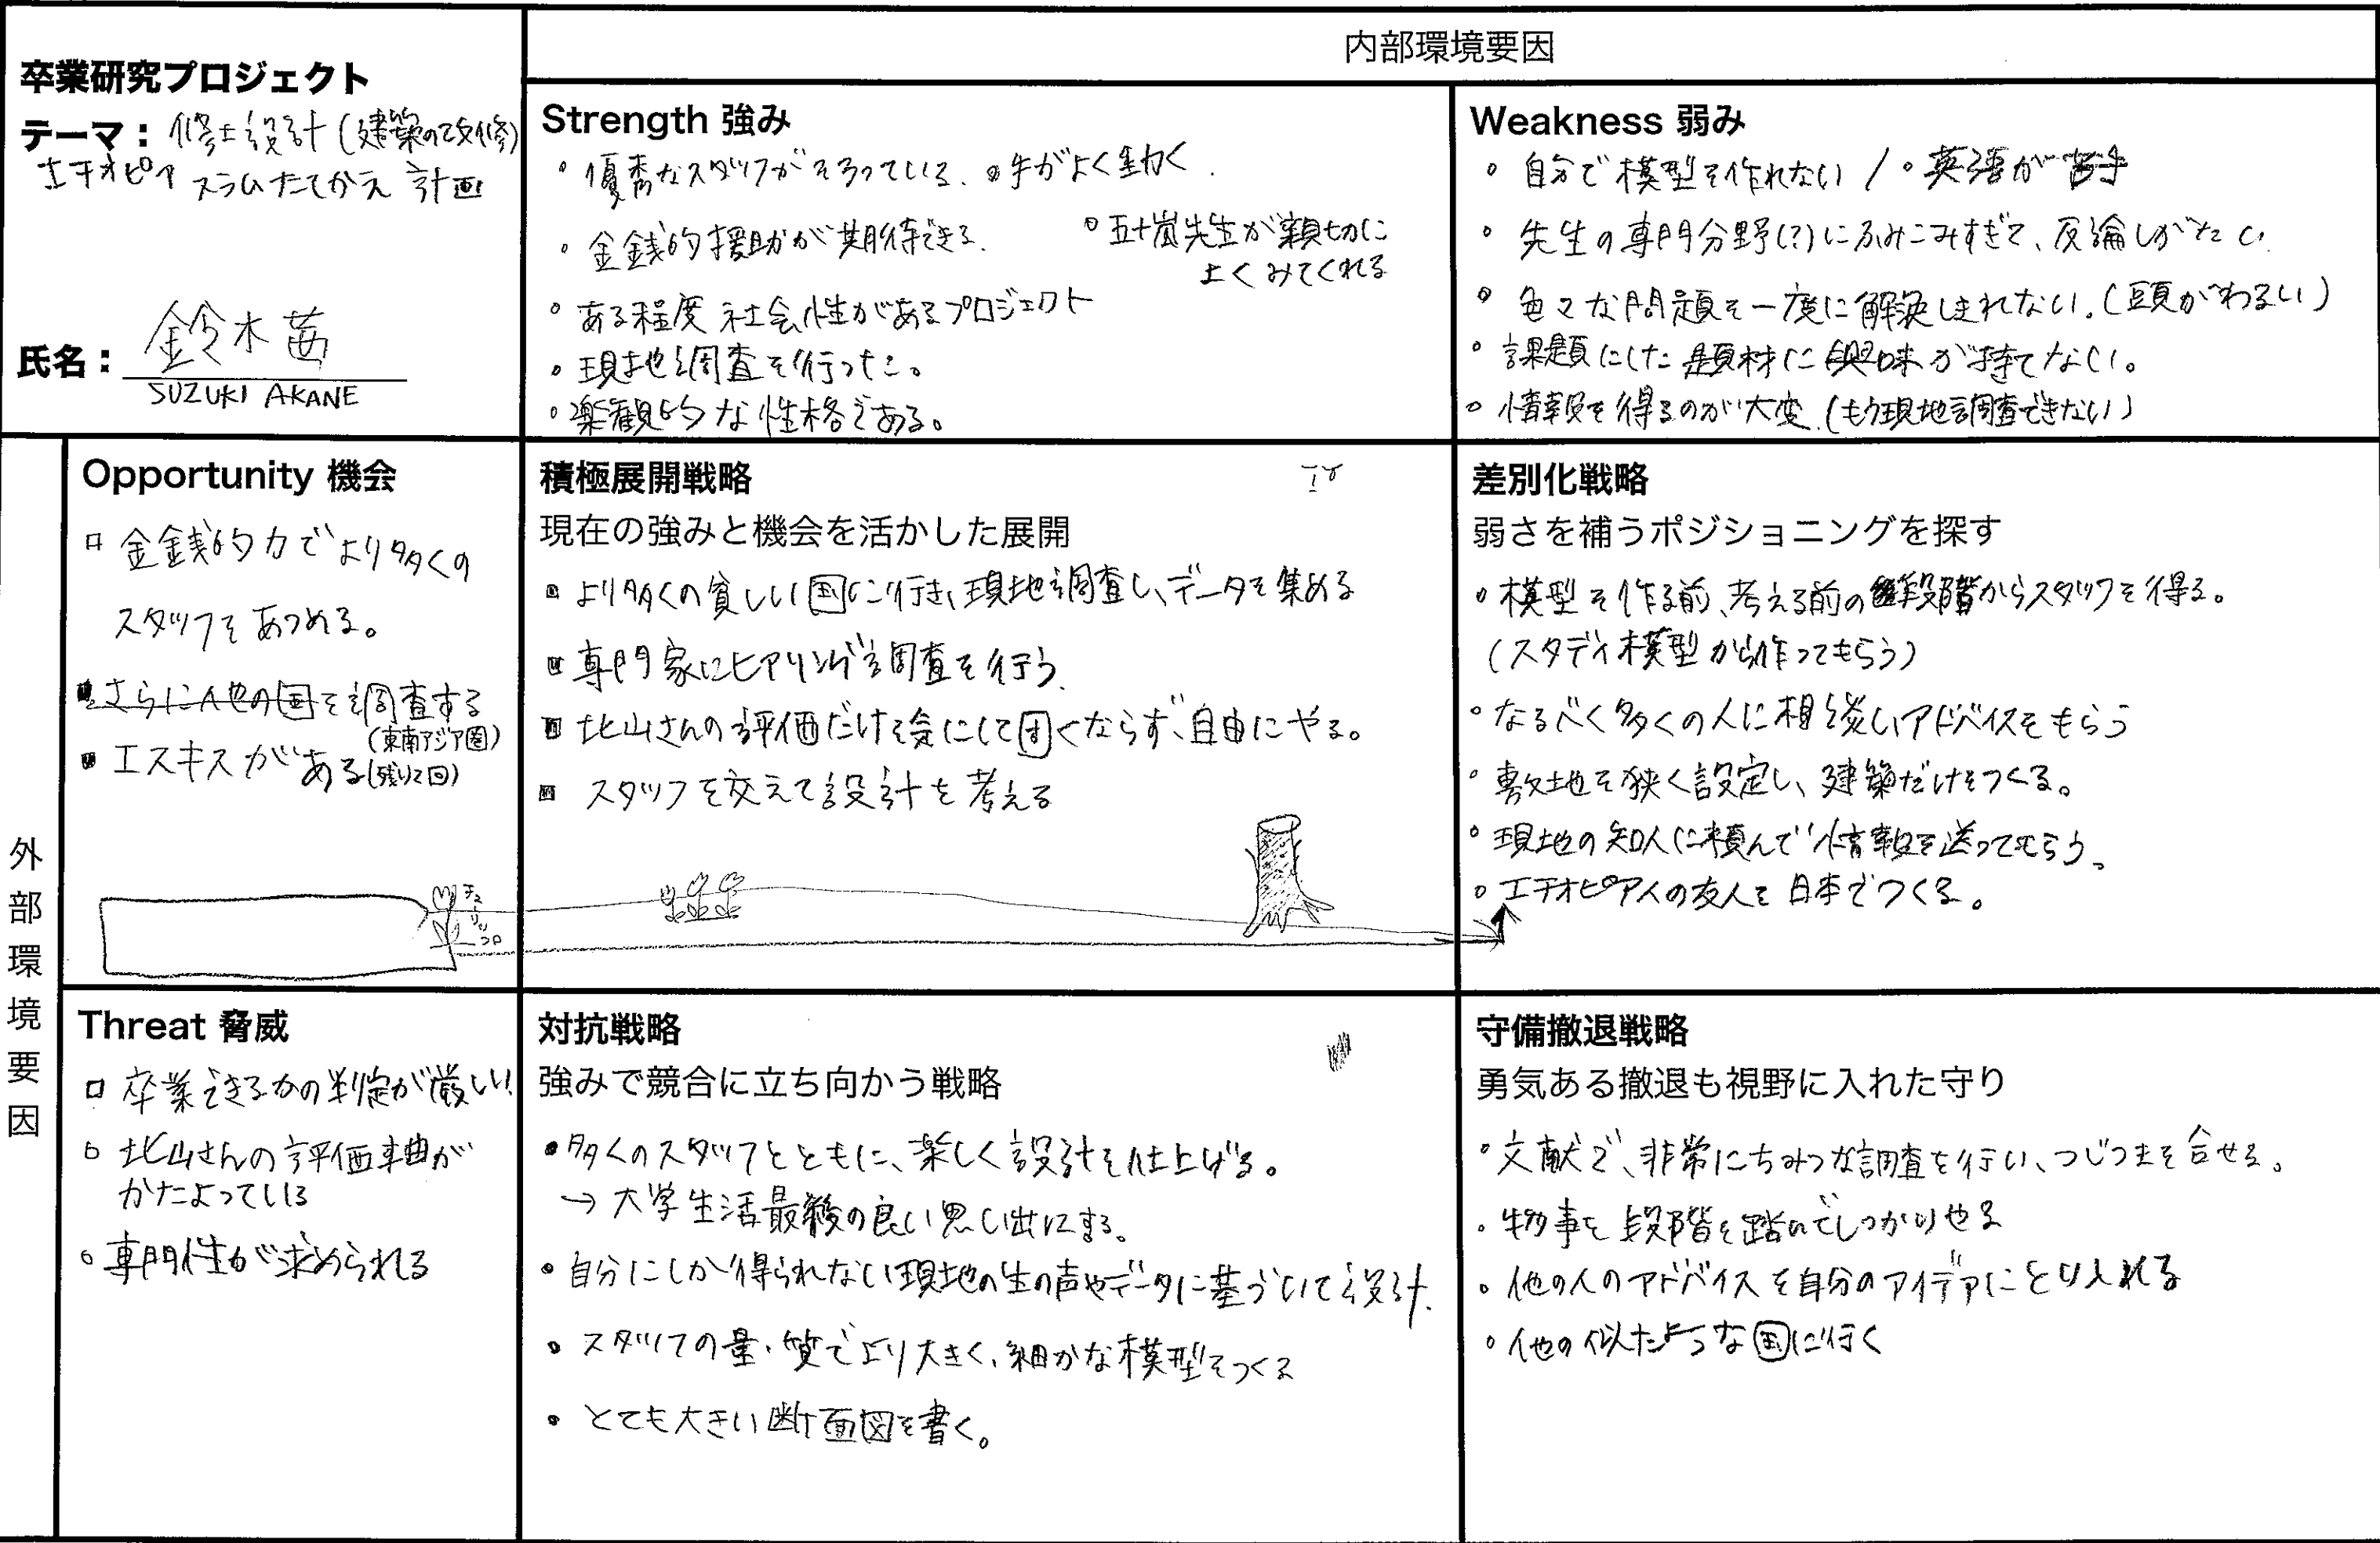 内部環境要因
卒業研究プロジェクト
テーマ：修士設計(建築の改修)
エチオピア スラムたてかえ 計画
氏名：鈴木茜
SUZUKI AKANE
Strength 強み
・優秀なスタッフがそろっている。 ・手がよく動く.
・金銭的援助が期待できる.
・五十嵐先生が親切に
よくみてくれる
・ある程度 社会性があるプロジェクト
・現地調査を行った。
・楽観的な性格である。
Weakness 弱み
・自分で模型を作れない / ・英語が苦手
・先生の専門分野(?)にふみこみすぎて、反論しがたい
・色々な問題を一度に解決しきれない。(頭がわるい)
・課題にした題材に興味が持てない。
・情報を得るのが大変.(もう現地調査できない)
外部環境要因
Opportunity 機会
▫ 金銭的力でより多くの
スタッフをあつめる。
▪ さらに他の国を調査する
(東南アジア圏)
▪ エスキスがある(残り2回)
チューリップ
積極展開戦略
現在の強みと機会を活かした展開
▪ より多くの貧しい国に行き、現地調査し、データを集める
▪ 専門家にヒアリング調査を行う.
▪ 北山さんの評価だけを気にして固くならず、自由にやる。
▪ スタッフを交えて設計を考える
差別化戦略
弱さを補うポジショニングを探す
・模型を作る前、考える前の段階からスタッフを得る。
(スタディ模型から作ってもらう)
・なるべく多くの人に相談しアドバイスをもらう
・敷地を狭く設定し、建築だけをつくる。
・現地の知人に頼んで情報を送ってもらう。
・エチオピア人の友人を日本でつくる。
Threat 脅威
▫ 卒業できるかの判定が厳しい!
▫ 北山さんの評価軸が
かたよっている
▫ 専門性が求められる
対抗戦略
強みで競合に立ち向かう戦略
・多くのスタッフとともに、楽しく設計を仕上げる。
→ 大学生活最後の良い思い出にする。
・自分にしか得られない現地の生の声やデータに基づいて設計.
・スタッフの量・質でより大きく、細かな模型をつくる
・とても大きい断面図を書く。
守備撤退戦略
勇気ある撤退も視野に入れた守り
・文献で、非常にちみつな調査を行い、つじつまを合せる。
・物事を段階を踏んでしっかりやる
・他の人のアドバイスを自分のアイデアにとり入れる
・他の似たような国に行く